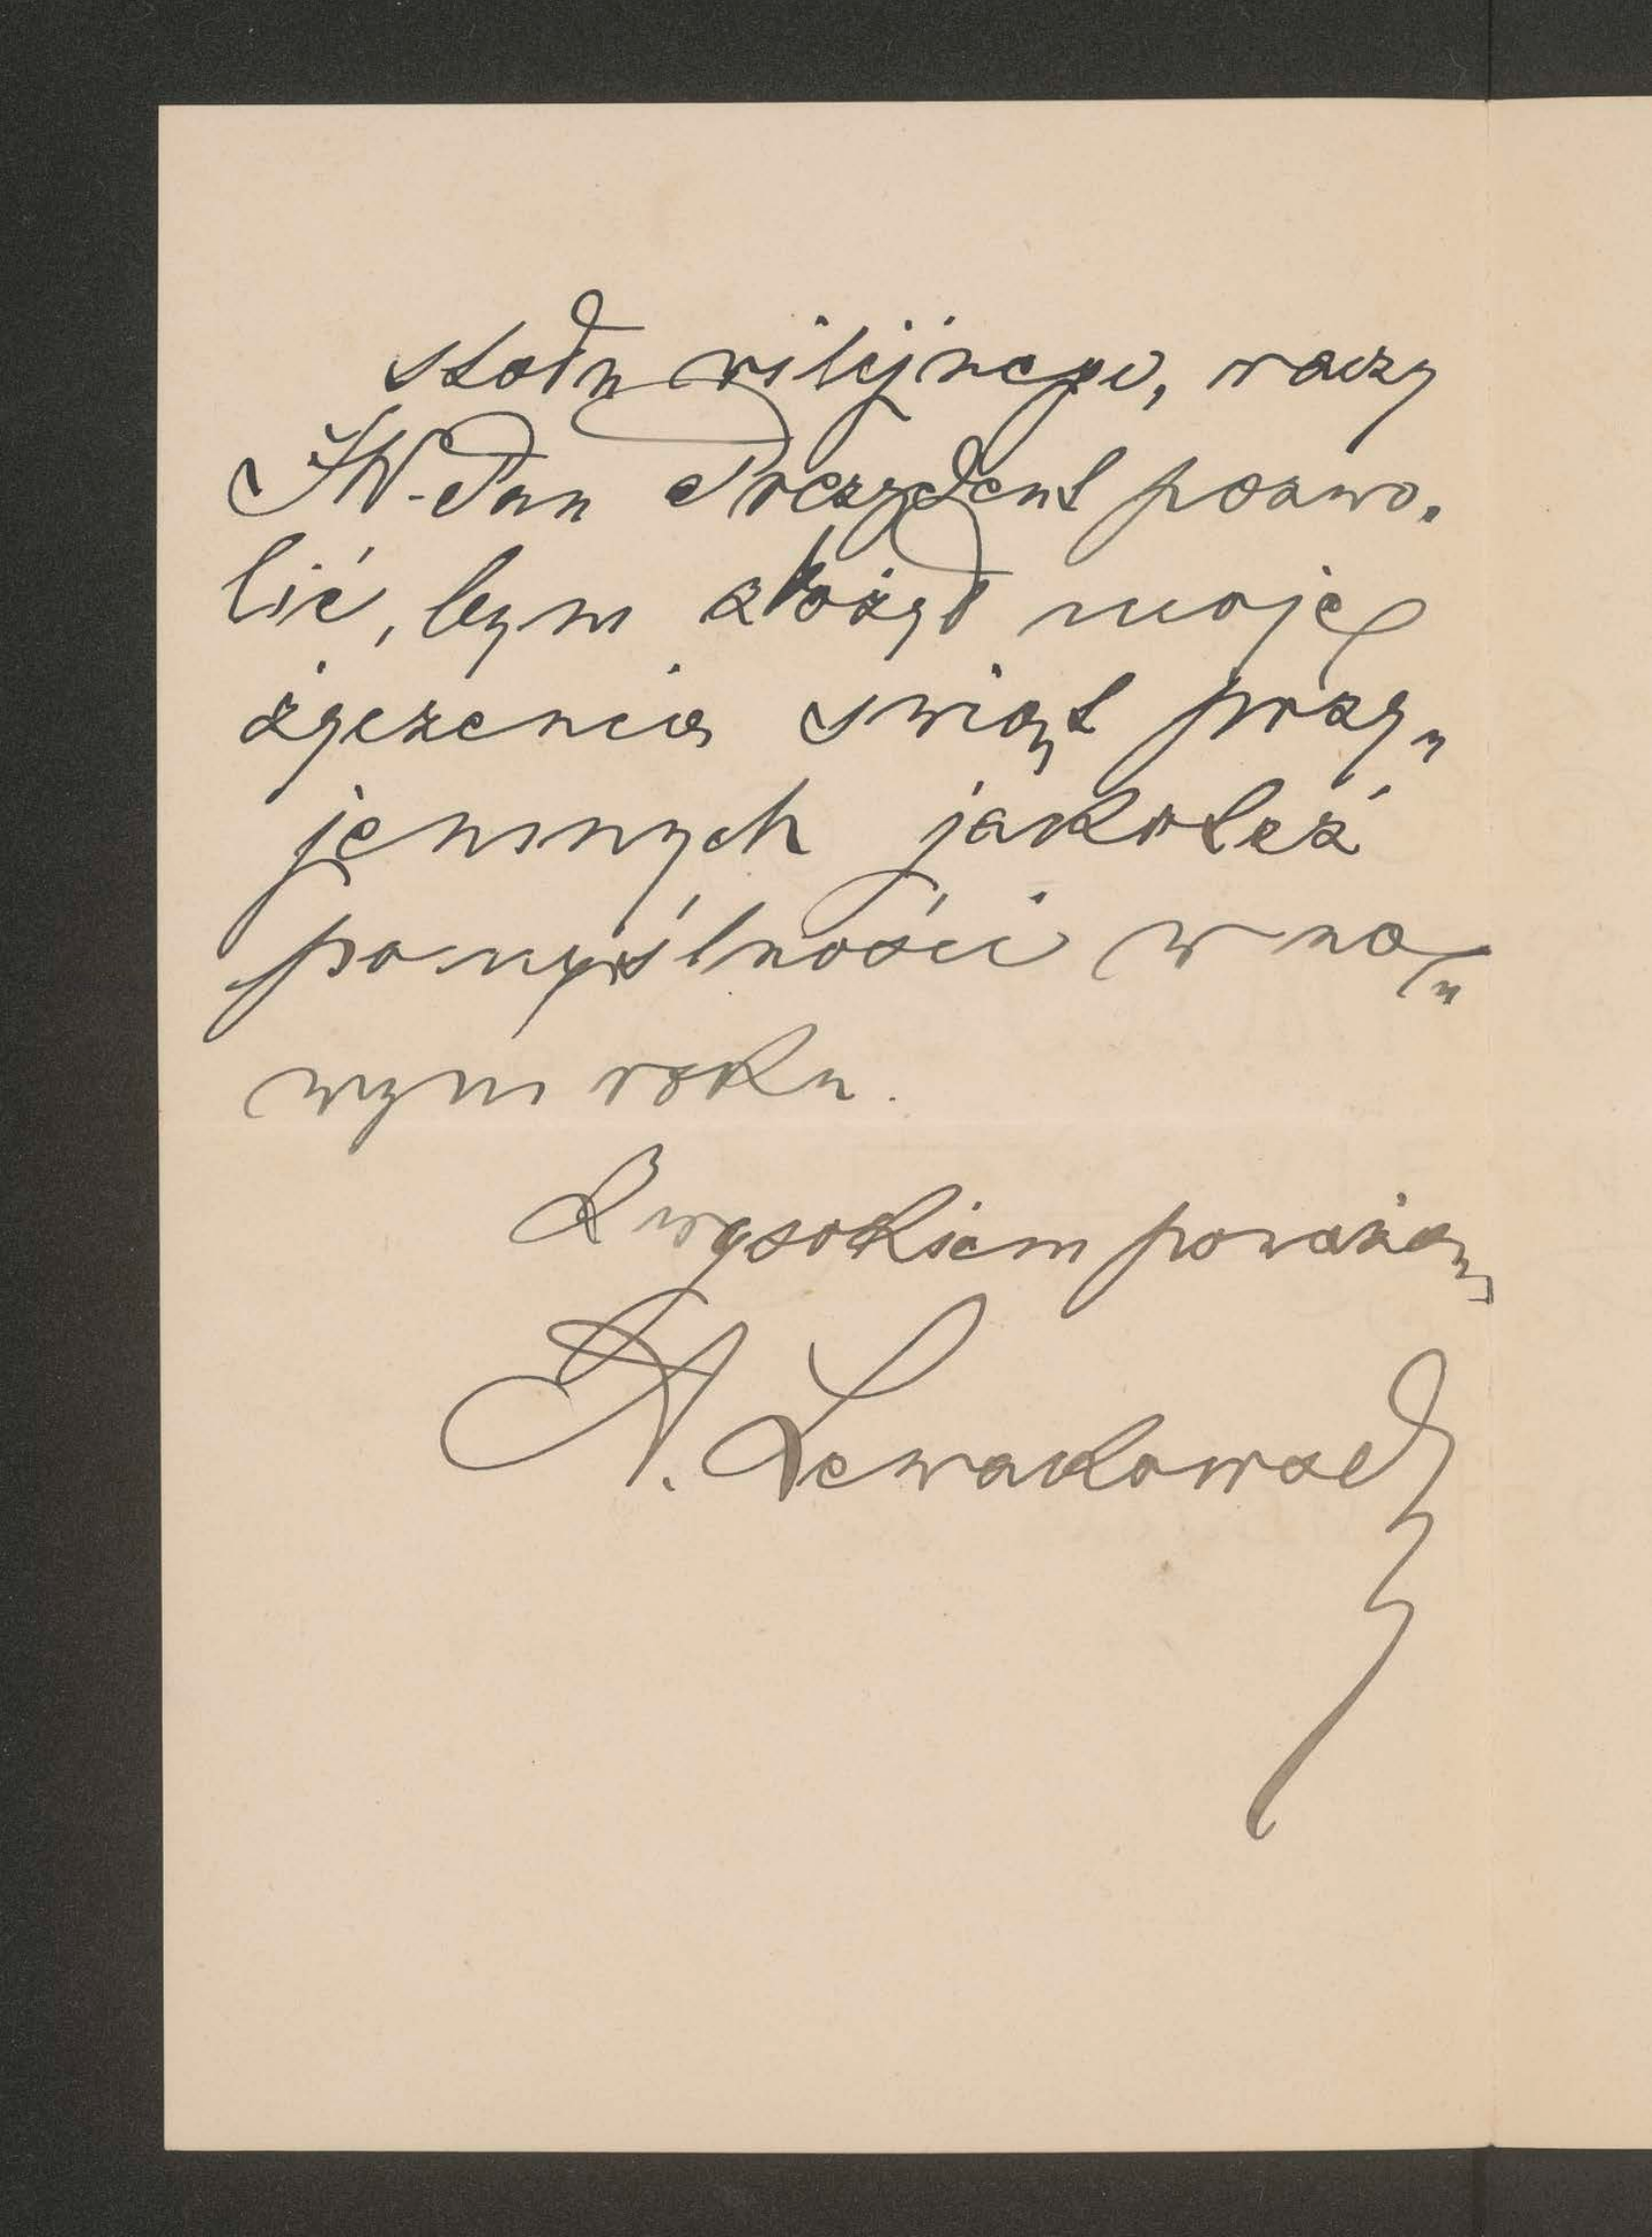 stołu wilijnego, raczy
JW. Pan Prezydent pozwo-
lić, bym złożył moje
życzenia świąt przy-
jemnych jakoteż
pomyślności w no-
wym roku.
Z wysokiem poważan
A. Lewakowski